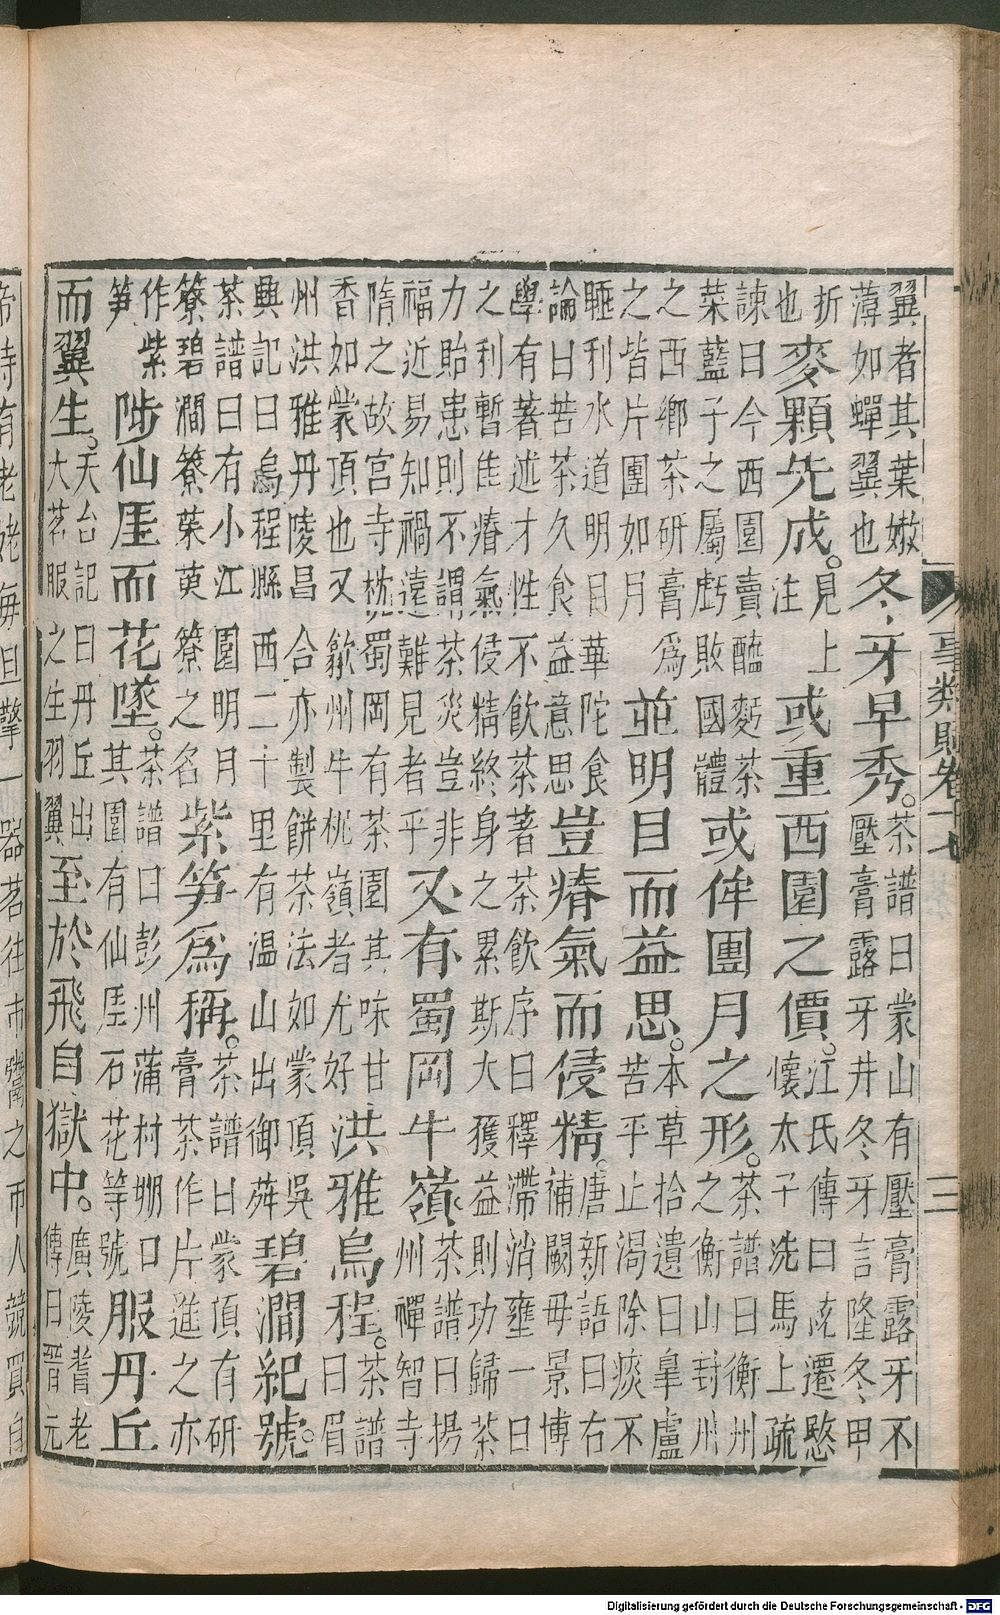 事類賦卷十七　三
翼者其葉嫩
薄如蟬翼也
冬牙早秀。
茶譜曰蒙山有壓膏露牙不
壓膏露牙井冬牙言隆冬甲
折
也
麥顆先成。
見上
注
或重西園之價。
江氏傳曰統遷愍
懷太子洗馬上疏
諫曰今西園賣醯麪茶
菜藍子之屬虧敗國體
或侔團月之形。
茶譜曰衡州
之衡山封州
之西鄉茶研膏爲
之皆片團如月
並明目而益思。
本草拾遺曰皐盧
苦平止渴除痰不
睡利水道明目華陀食
論曰苦茶久食益意思
豈瘠氣而侵精。
唐新語曰右
補闕毋景博
學有著述才性不飲茶著茶飲序曰釋滯消壅一日
之利暫佳瘠氣侵精終身之累斯大獲益則功歸茶
力貽患則不謂茶災豈非
福近易知禍遠難見者乎
又有蜀岡牛嶺
茶譜曰揚
州禪智寺
隋之故宮寺枕蜀岡有茶園其味甘
香如蒙頂也又歙州牛桃嶺者尤好
洪雅烏程。
茶譜
曰眉
州洪雅丹陵昌合亦製餅茶法如蒙頂吳
興記曰烏程縣西二十里有温山出御荈
碧澗紀號。
茶譜曰有小江園明月
簝碧澗簝茱萸簝之名
紫笋爲稱。
茶譜曰蒙頂有研
膏茶作片進之亦
作紫
笋
陟仙厓而花墜。
茶譜曰彭州蒲村堋口
其園有仙厓石花等號
服丹丘
而翼生。
天台記曰丹丘出
大茗服之生羽翼
至於飛自獄中。
廣陵耆老
傳曰晉元
帝時有老姥每旦擎一器茗往市鬻之市人競買自
Digitalisierung gefördert durch die Deutsche Forschungsgemeinschaft - DFG